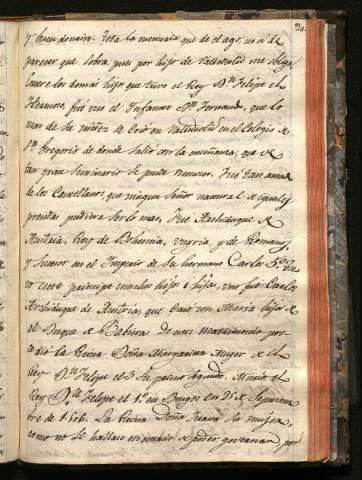 90.
y buen donaire. Esta la memoria que de el ago, no a de
parecer que sobra, pues por hijo de Valladolid me obliga
sobre los demas hijos que tuvo el Rey Dn Felipe el
Hermoso, fue uno el Infante Dn Fernando, que lo
mas de su niñez se crió en Valladolid en el Colegio de
Sn Gregorio de donde salio con la enseñanza, que de
tan gran Seminario se puede presumir. Fue tan amado
de los Castellanos, que ningun Señor natural de iguales
prendas pudiera serlo mas, fue Archiduque de
Austria, Rey de Bohemia, Ungria, y de Romanos,
y sucesor en el Imperio de su hermano Carlos 5º. Tu
vo este principe muchos hijos e hijas, uno fue Carlos
Archiduque de Austria, que caso con Maria hija de
el Duque de Babiera. De este matrimonio pro
cedió la Reina Doña Margarita Muger de el
Rey Dn Felipe el 3 su primo segundo. Murió el
Rey Dn Felipe el 1º en Burgos en 25 de Septiem
bre de 1506. La Reina Doña Juana su mujer,
como no se hallase en estado de poder governar por